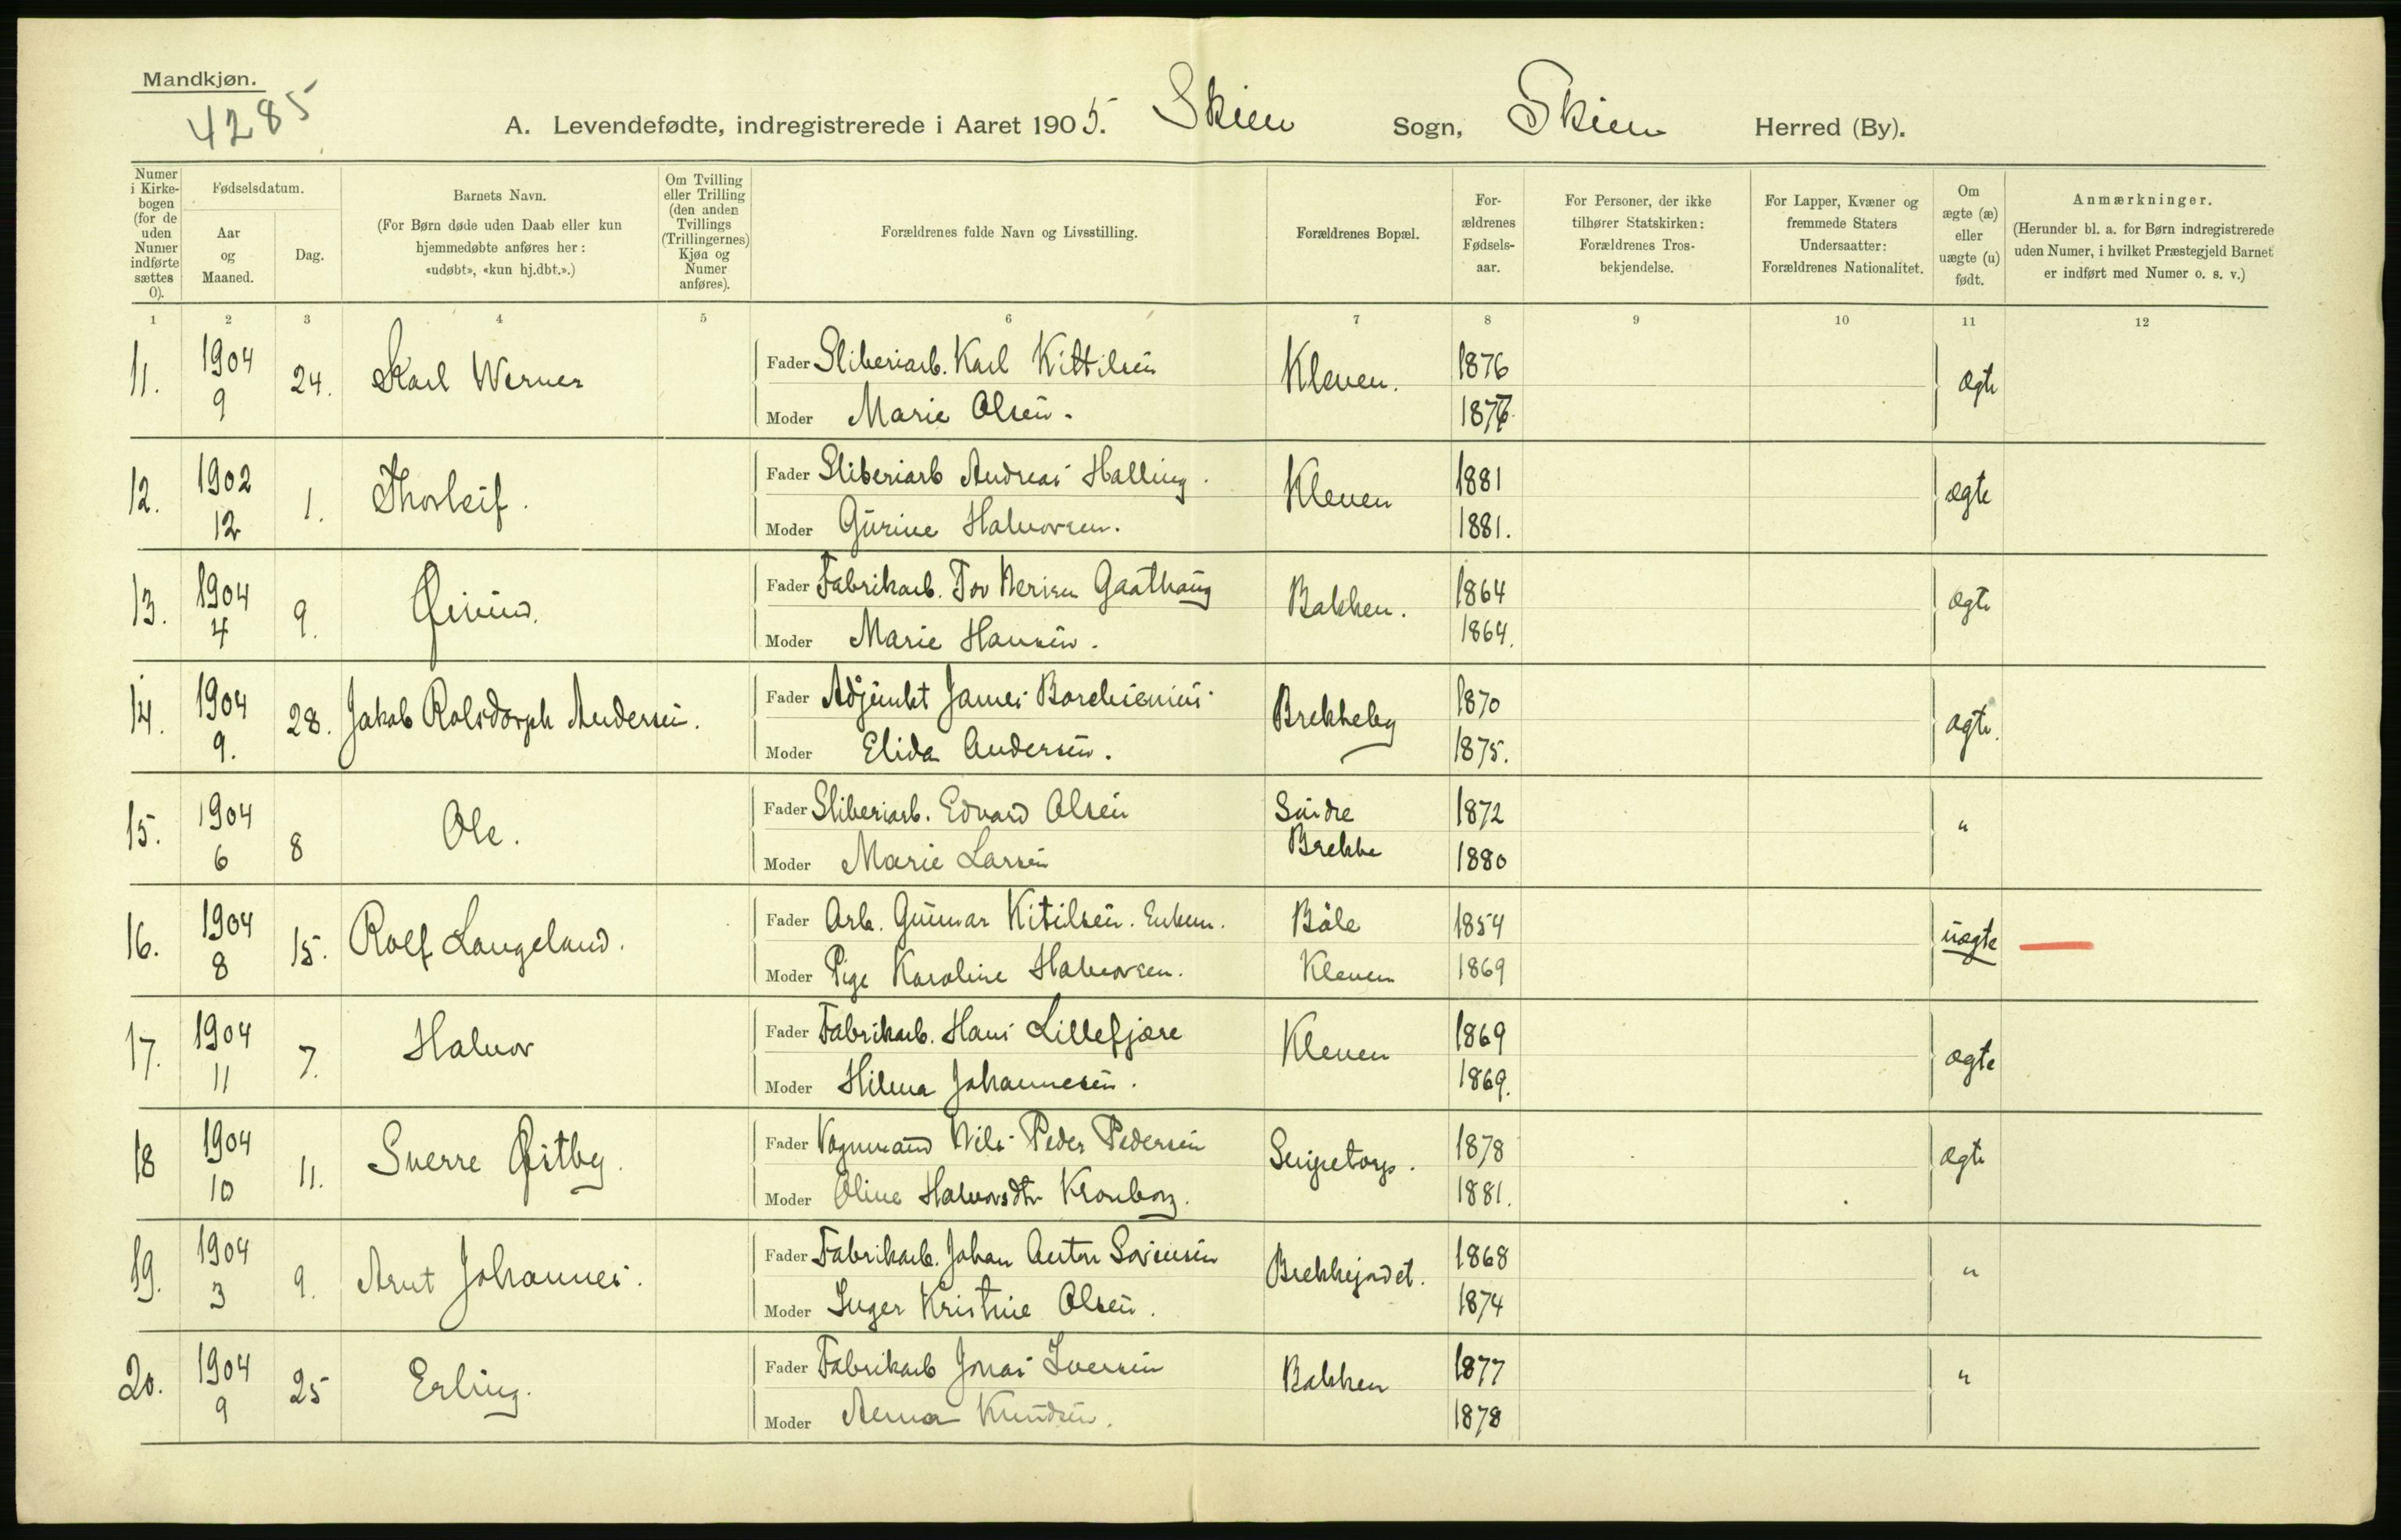 Mandkjøn.
4285
A. Levendefødte, indregistrerede i Aaret 1905. Skien Sogn, Skien Herred (By).
Numer i Kirke-bogen (for de uden Numer indførte sættes 0).
Fødselsdatum.
Aar og Maaned.
Dag.
Barnets Navn.
(For Børn døde uden Daab eller kun hjemmedøbte anføres her: «udøbt», «kun hj.dbt.».)
Om Tvilling eller Trilling (den anden Tvillings (Trillingernes) Kjøn og Numer anføres).
Forældrenes fulde Navn og Livsstilling.
Forældrenes Bopæl.
For-ældrenes Fødsels-aar.
For Personer, der ikke tilhører Statskirken: Forældrenes Tros-bekjendelse.
For Lapper, Kvæner og fremmede Staters Undersaatter: Forældrenes Nationalitet.
Om ægte (æ) eller uægte (u) født.
Anmærkninger.
(Herunder bl. a. for Børn indregistrerede uden Numer, i hvilket Præstegjeld Barnet er indført med Numer o. s. v.)
1 2 3 4 5 6 7 8 9 10 11 12
11. 1904 9 24. Karl Werner
Fader Sliberiarb. Karl Kittilsen Kleven. 1876 ægte
Moder Marie Olsen. 1876.
12. 1902 12 1. Thorleif.
Fader Sliberiarb Andreas Halling. Kleven 1881 ægte
Moder Gurine Halvorsen. 1881.
13. 1904 4 9. Øivind.
Fader Fabrikarb. Tov Gaathaug Bakken. 1864 ægte
Moder Marie Hansen. 1864.
14. 1904 9. 28. Jakob Rolsdorph Andersen.
Fader Adjunkt James Borchsenius Brekkeby 1870 ægte.
Moder Elida Andersen. 1875.
15. 1904 6 8 Ole.
Fader Sliberiarb. Edvard Olsen Søndre Brekke 1872 "
Moder Marie Larsen 1880
16. 1904 8 15. Rolf Langeland.
Fader Arb. Gunnar Kitilsen. Enkem. Bøle 1854 uægte
Moder Pige Karoline Halvorsen. Kleven 1869
17. 1904 11 7. Halvor
Fader Fabrikarb. Hans Lillefjære Kleven 1869 ægte
Moder Hilma Johannesen. 1869.
18 1904 10 11. Sverre Østby.
Fader Vognmand Nils Peder Pedersen 1878 ægte
Moder Oline Halvorsdtr Kronborg. 1881.
19. 1904 3 9. Arnt Johannes.
Fader Fabrikarb. Johan Anton Sørensen Brekkejordet. 1868 "
Moder Inger Kristine Olsen. 1874
20. 1904 9 25 Erling.
Fader Fabrikarb Jonas Iversen Bakken 1877 "
Moder Anna Knudsen. 1878